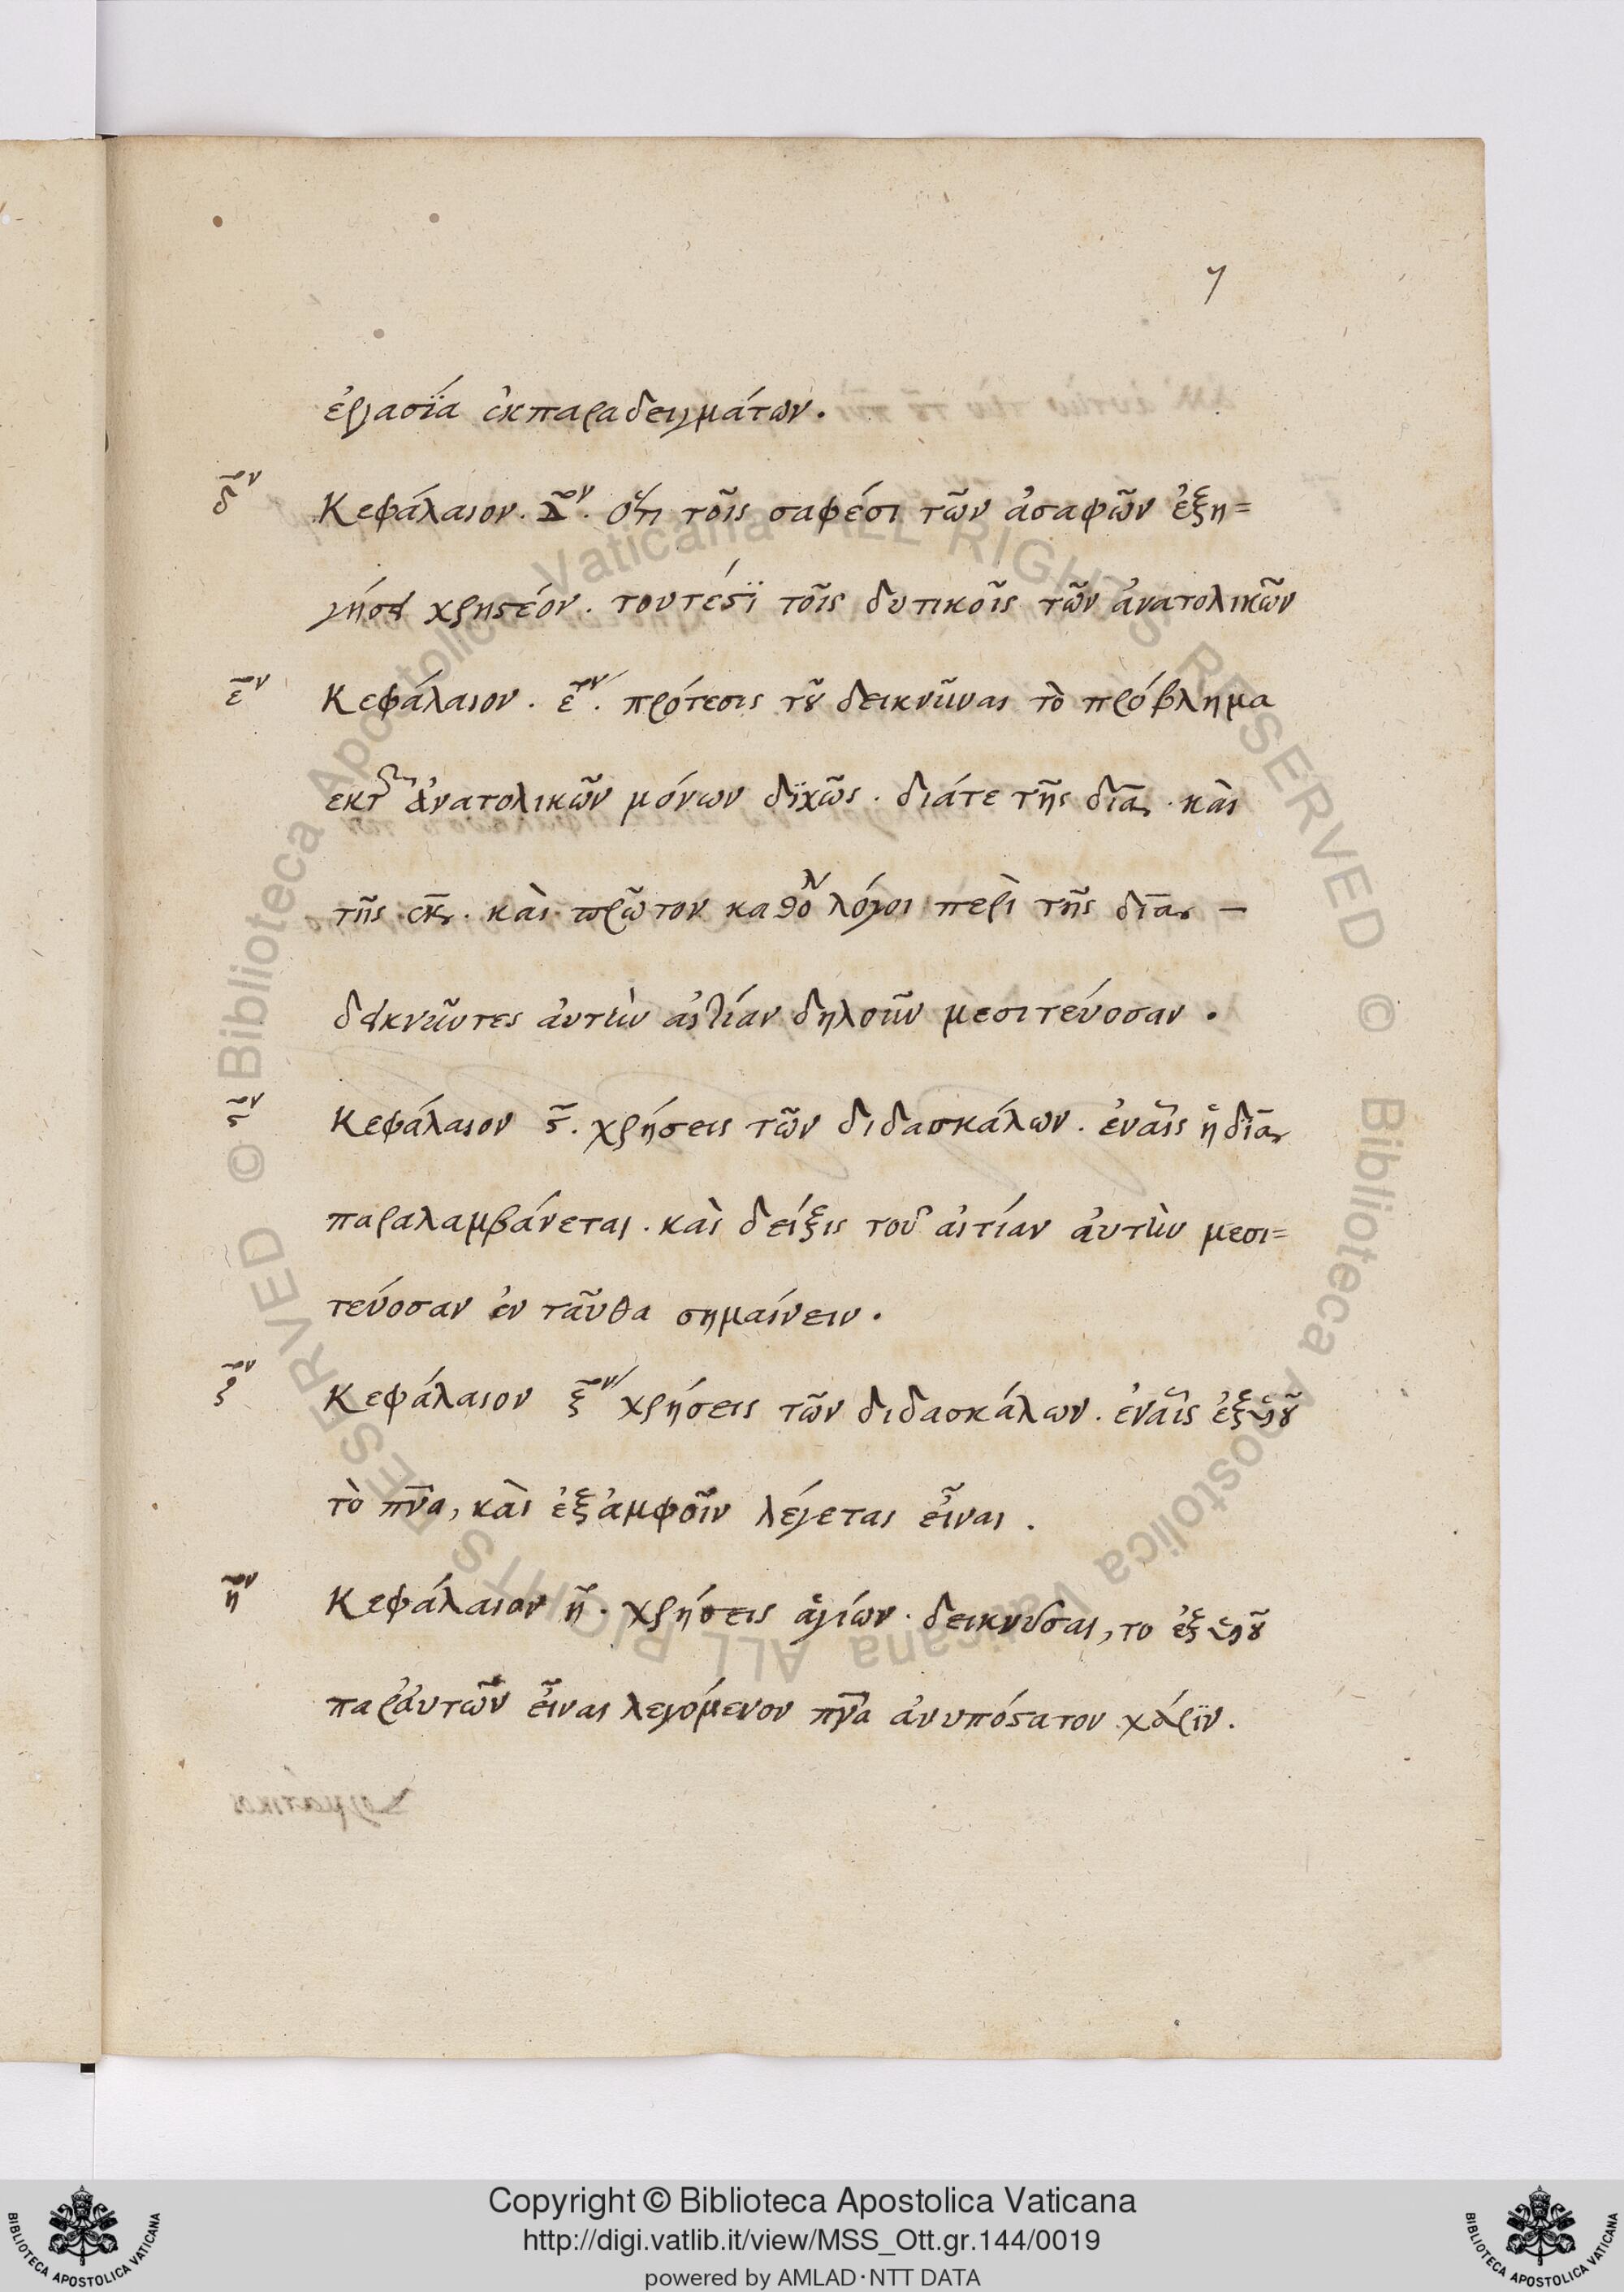 7
ἐργασΐα ἐκπαραδειγμάτων.
δ̄ον Κεφάλαιον. Δ̄ον. ὅτι τοῖς σαφέσι τῶν ἀσαφῶν ἐξη=
γήσει χρηστέον. τουτέστϊ τοῖς δυτικοῖς τῶν ἀνατολικῶν
ε̄ον Κεφάλαιον. ε̄ον. πρότεσις τοῦ δεικνῦναι τὸ πρόβλημα
εκτῶν ἀνατολικῶν μόνων δϊχῶς. διάτε τῆς διὰ. καὶ
τῆς ἐκ. καὶ πρῶτον καθολ λόγοι περὶ τῆς διὰ –
δεικνῦντες αὐτὴν αἰτίαν δηλοῦν μεσιτεύοσαν.
ϛ̄ον Κεφάλαιον ϛ̄. χρήσεις τῶν διδασκάλων. ἐναἷς ἡ διὰ
παραλαμβάνεται. καὶ δείξις τοῦ αἰτίαν αὐτὴν μεσι=
τεύοσαν ἐν ταῦθα σημαίνειν.
ζ̄ον Κεφάλαιον ζ̄ον χρήσεις τῶν διδασκάλων. ἐναἷς ἐξ υἱοῦ
τὸ πν̅α, καὶ ἐξἀμφοῖν λέγεται εἶναι.
η̄ον Κεφάλαιον η̄. χρήσεις ἁγίων. δεικνῦσαι, το ἐξ υἱοῦ
παρ'αὐτῶν εἶναι λεγόμενον πν̅α ἀνυπόστατον χάρϊν.
Copyright © Biblioteca Apostolica Vaticana
http://digi.vatlib.it/view/MSS_Ott.gr.144/0019
powered by AMLAD·NTT DATA
BIBLIOTECA APOSTOLICA VATICANA
BIBLIOTECA APOSTOLICA VATICANA
© Biblioteca Apostolica Vaticana ALL RIGHTS RESERVED © Biblioteca Apostolica Vaticana ALL RIGHTS RESERVED